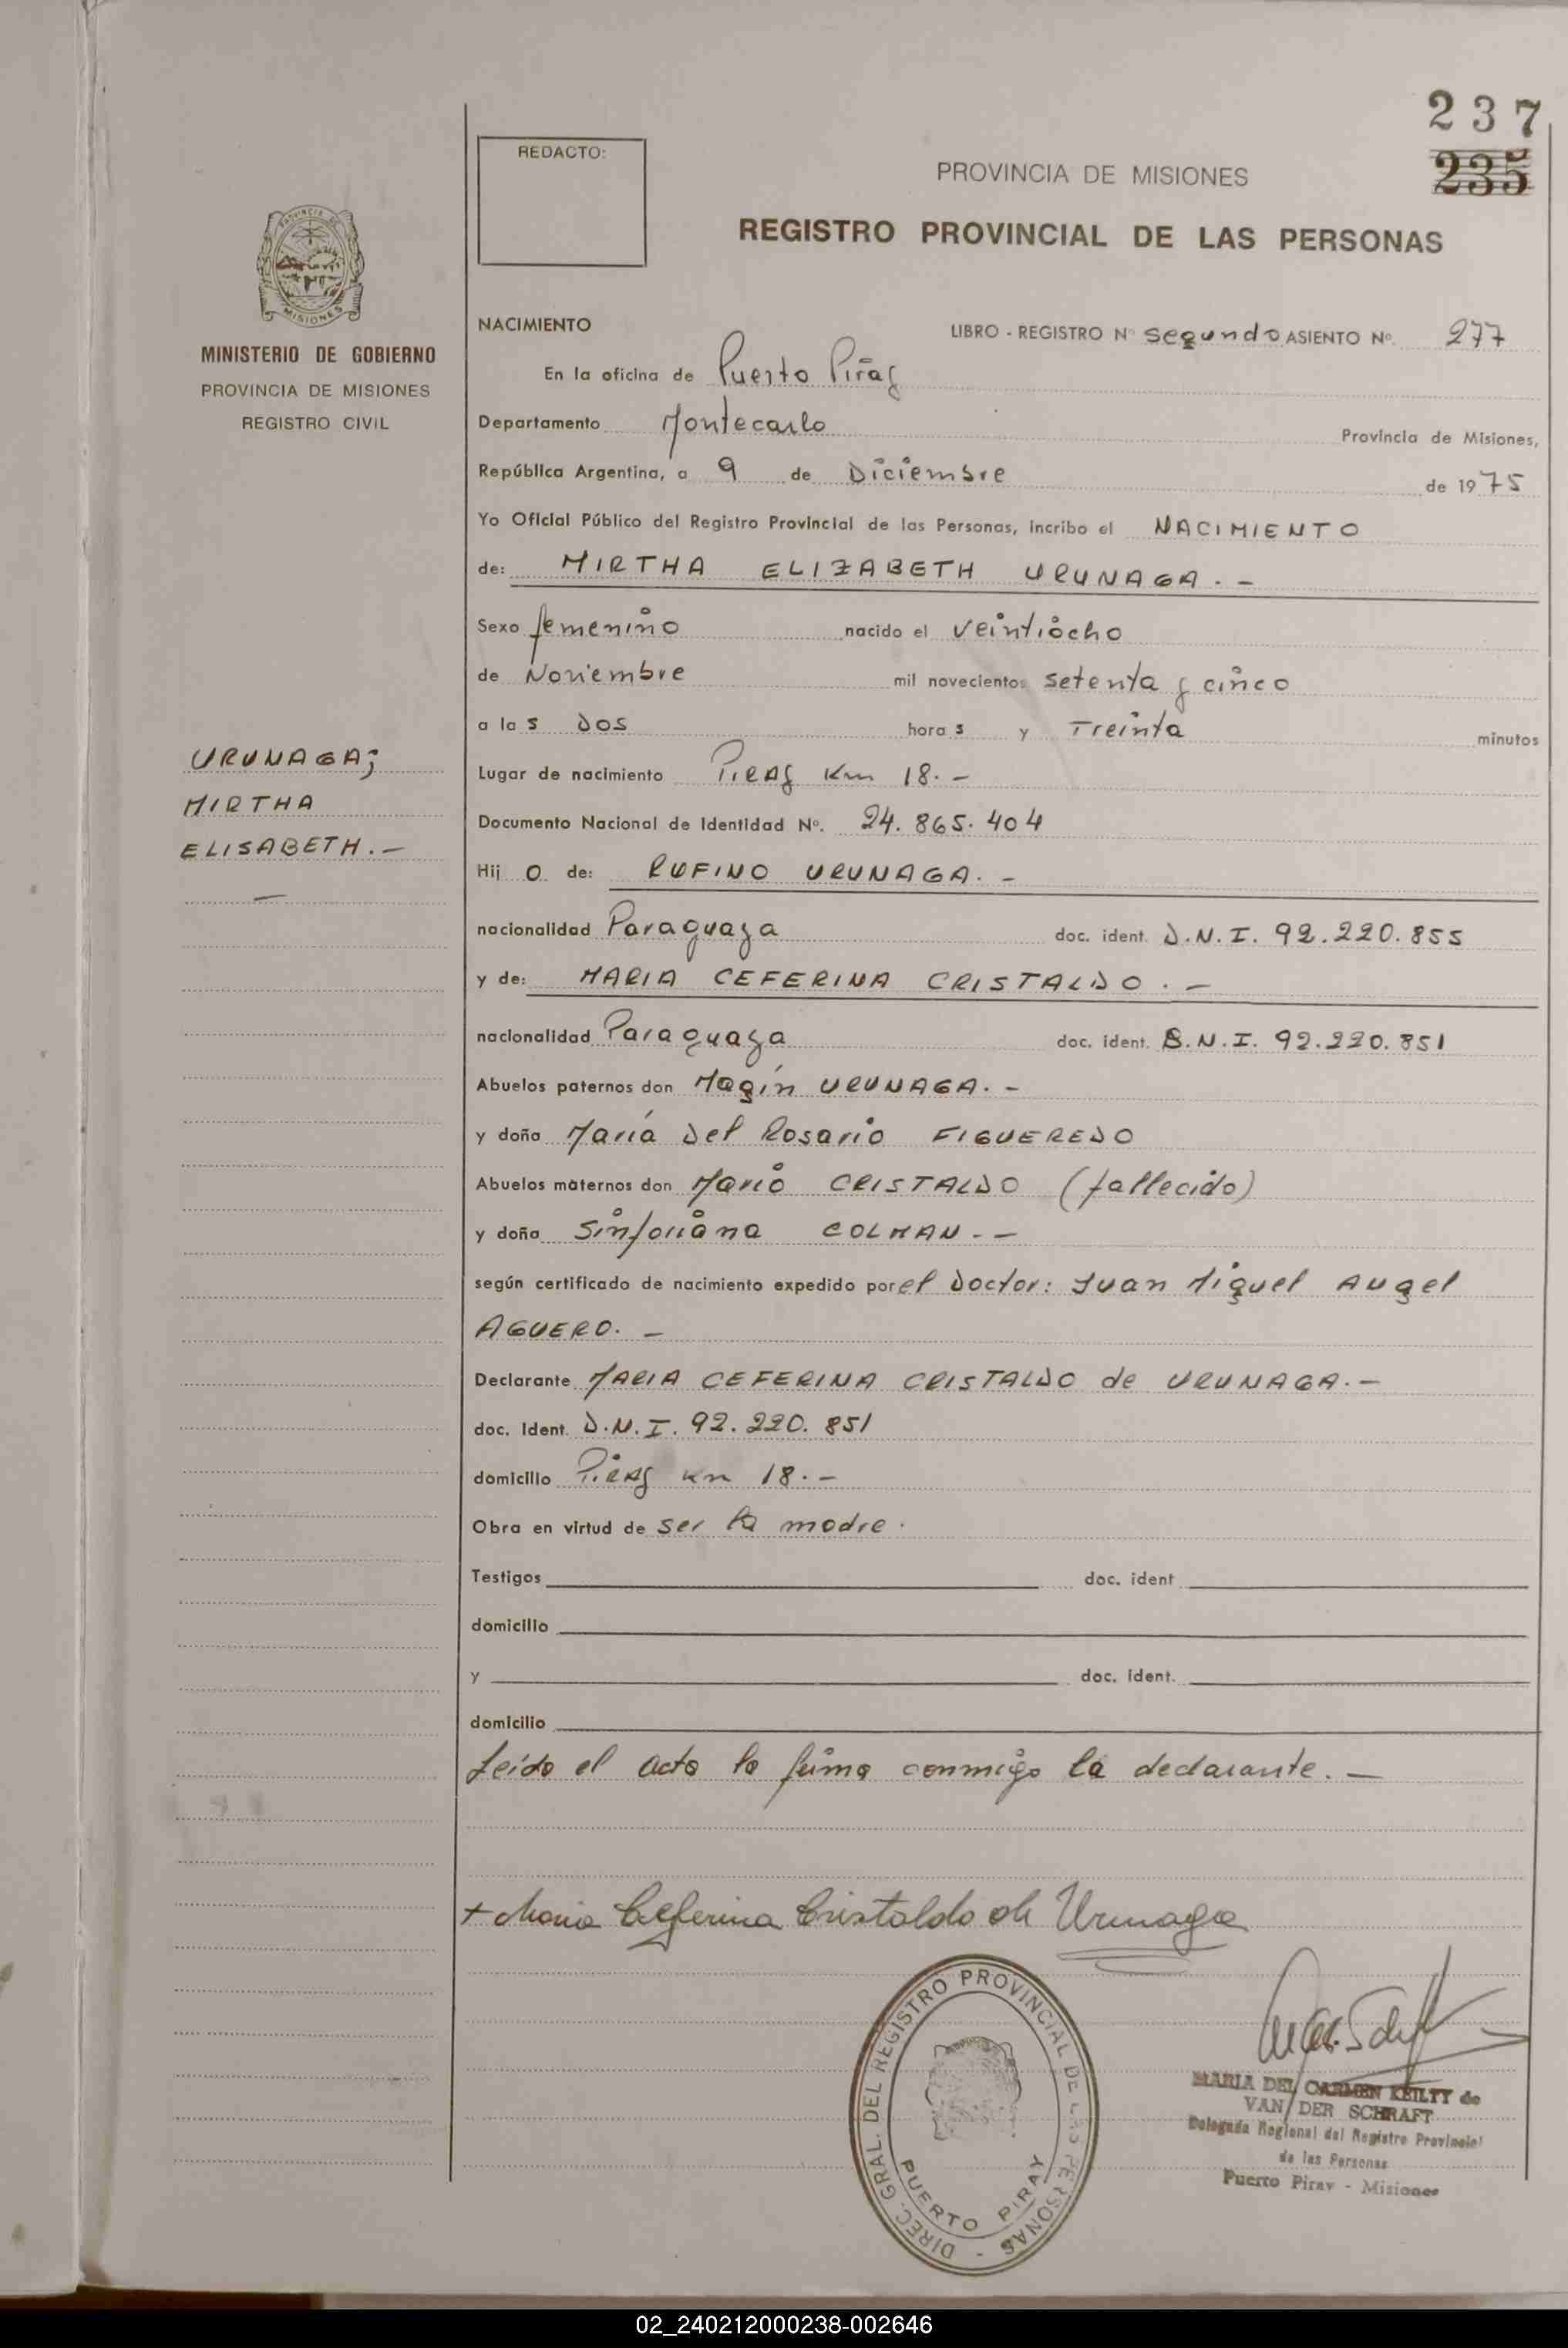 237
235
REDACTO:
PROVINCIA DE MISIONES
REGISTRO PROVINCIAL DE LAS PERSONAS
PROVINCIA DE
MISIONES
MINISTERIO DE GOBIERNO
PROVINCIA DE MISIONES
REGISTRO CIVIL
NACIMIENTO LIBRO - REGISTRO Nº segundo ASIENTO Nº. 277
En la oficina de Puerto Piray
Departamento Montecarlo Provincia de Misiones,
República Argentina, a 9 de Diciembre de 1975
Yo Oficial Público del Registro Provincial de las Personas, incribo el NACIMIENTO
de: MIRTHA ELIZABETH URUNAGA. -
Sexo femenino nacido el veintiocho
de Noviembre mil novecientos setenta y cinco
a las dos horas y Treinta minutos
URUNAGA;
MIRTHA
ELISABETH. -
Lugar de nacimiento Piray Km 18. -
Documento Nacional de Identidad Nº. 24.865.404
Hijo de: RUFINO URUNAGA. -
nacionalidad Paraguaya doc. ident. D.N.I. 92.220.855
y de: MARIA CEFERINA CRISTALDO. -
nacionalidad Paraguaya doc. ident. D.N.I. 92.220.851
Abuelos paternos don Magín URUNAGA. -
y doña María Del Rosario FIGUEREDO
Abuelos maternos don Mario CRISTALDO (fallecido)
y doña Sinforiana COLMAN. -
según certificado de nacimiento expedido por el Doctor: Juan Miguel Angel
AGUERO. -
Declarante MARIA CEFERINA CRISTALDO de URUNAGA. -
doc. Ident. D.N.I. 92.220.851
domicilio Piray Km 18. -
Obra en virtud de ser la madre.
Testigos doc. ident
domicilio
y doc. ident.
domicilio
Leido el acta la firma conmigo la declarante. -
+ Maria Ceferina Cristaldo de Urunaga
DIREC. GRAL. DEL REGISTRO PROVINCIAL DE LAS PERSONAS -
PUERTO PIRAY
MARIA DEL CARMEN KEILTY de
VAN DER SCHRAFT
Delegada Regional del Registro Provincial
de las Personas
Puerto Piray - Misiones
02_240212000238-002646